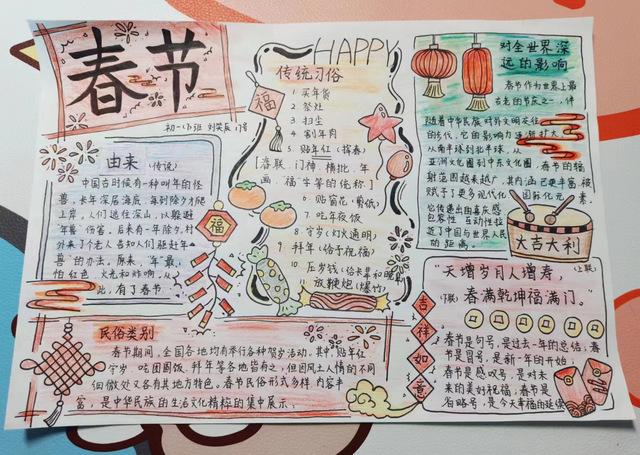 春节
初一(7)班
由来(传说)
中国古时候有一种叫年的怪
兽，长年深居海底，每到除夕才爬
上岸，人们逃往深山，以躲避
年兽伤害。后来有一年除夕，村
外来了个老人告知人们驱赶年
兽的办法。原来，年最
怕红色、火光和炸响，从
此，有了春节
福
民俗类别
春节期间，全国各地均有举行各种贺岁活动。其中，贴年红
守岁、吃团圆饭、拜年等各地皆有之，但因风土人情的不同
细微处又各有其地方特色。春节民俗形式多样、内容丰
富，是中华民族的生活文化精粹的集中展示。
HAPPY
传统习俗
福
1. 买年货
2. 祭灶
3. 扫尘
4. 割年肉
5. 贴年红(挥春)
[春联、门神、横批、年
画、福字等的统称]
6. 贴窗花(剪纸)
7. 吃年夜饭
8. 守岁(灯火通明)
9. 拜年(给予祝福)
10. 压岁钱(给长辈和晚辈)
11. 放鞭炮(爆竹)
吉祥如意
对全世界深
远的影响
春节作为世界上最
古老的节庆之一，伴
随着中华民族对外文明交往
的步伐，它的影响力逐渐扩大
从南半球到北半球，从
亚洲文化圈到中东文化圈，春节的辐
射范围越来越广，其内涵已更丰富，被
赋予了更多现代化、国际化元素。
它传递出的喜庆感
包容性、互动性拉
近了中国与世界人民
的距离。
大吉大利
“天增岁月人增寿，(上联)
(下联)春满乾坤福满门。”
春节是句号，是过去一年的总结；春
节是冒号，是新一年的开始；
春节是感叹号，是对未
来的美好祝福；春节是
省略号，是今天幸福的延续